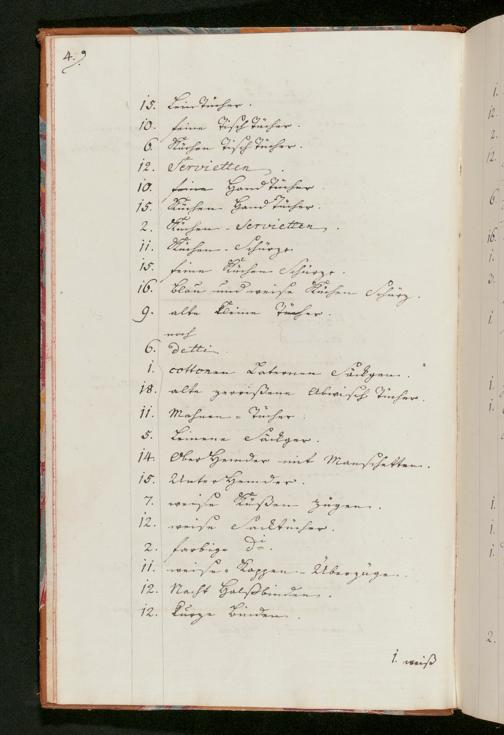 4.
15. Leintücher.
10. feine Tisch Tücher.
6. Kuchen Tisch Tücher.
12. Servietten.
10. feine Hand Tücher
15. Kuchen Hand Tücher.
2. Kuchen-Servietten.
11. Kuchen-Schürze.
15. feine Kuchen Schürze.
16. blau und weise Kuchen Schürz.
9. alte kleine Tücher.
noch
6. detti.
1. cottonen Laternen Säckgen.
18. alte zerrißene Abwisch Tücher.
11. Tücher
5. Leinene Säckger.
14. Ober Hemder mit Manschetten.
15. Unter Hemder.
7. weise Küßen Zügen.
12. weise Sacktücher.
2. farbige do.
11. weise Kappen-Überzüge.
12. Nacht Halßbinden.
12. kurze Binden.
1. weiß